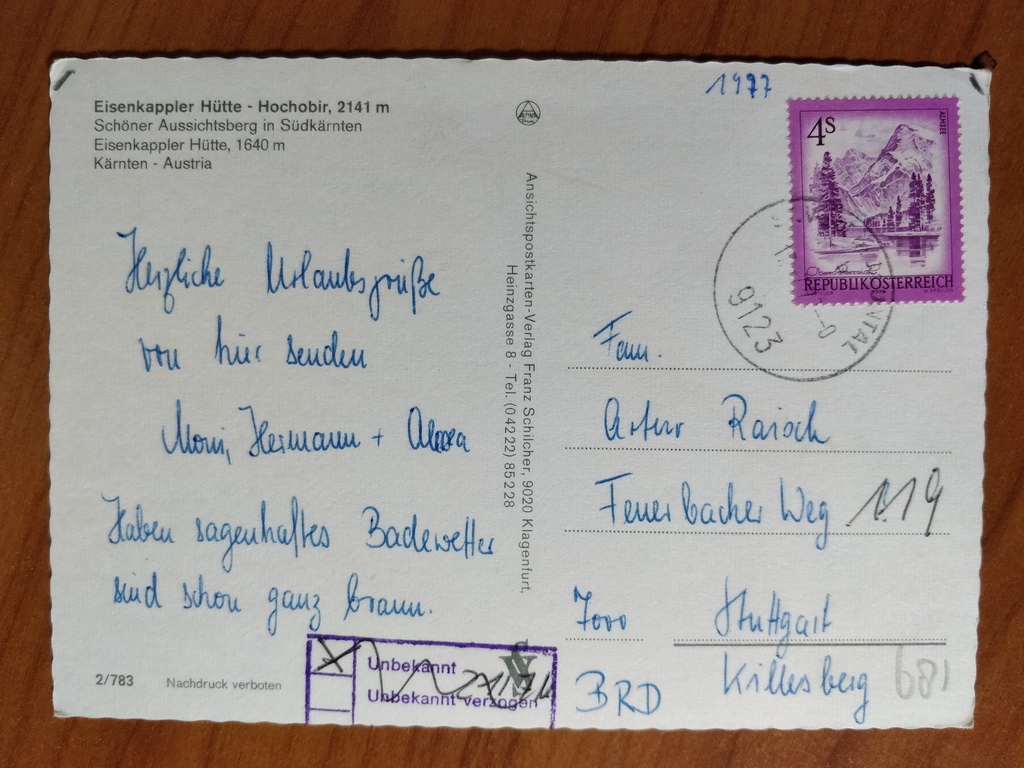 Eisenkappler Hütte - Hochobir, 2141 m
Schöner Aussichtsberg in Südkärnten
Eisenkappler Hütte, 1640 m
Kärnten - Austria
Herzliche Urlaubsgrüße
von hier senden
Moni, Hermann + Alexa
Haben sagenhaftes Badewetter
sind schon ganz braun.
2/783 Nachdruck verboten
Unbekannt
Unbekannt verzogen
Ansichtspostkarten-Verlag Franz Schilcher, 9020 Klagenfurt,
Heinzgasse 8 - Tel. (04222) 85228
1977
4S
ALMSEE
Oberösterreich
REPUBLIK ÖSTERREICH
9123
Fam.
Artur Raisch
Feuerbacher Weg 119
7000 Stuttgart
BRD Killesberg 681